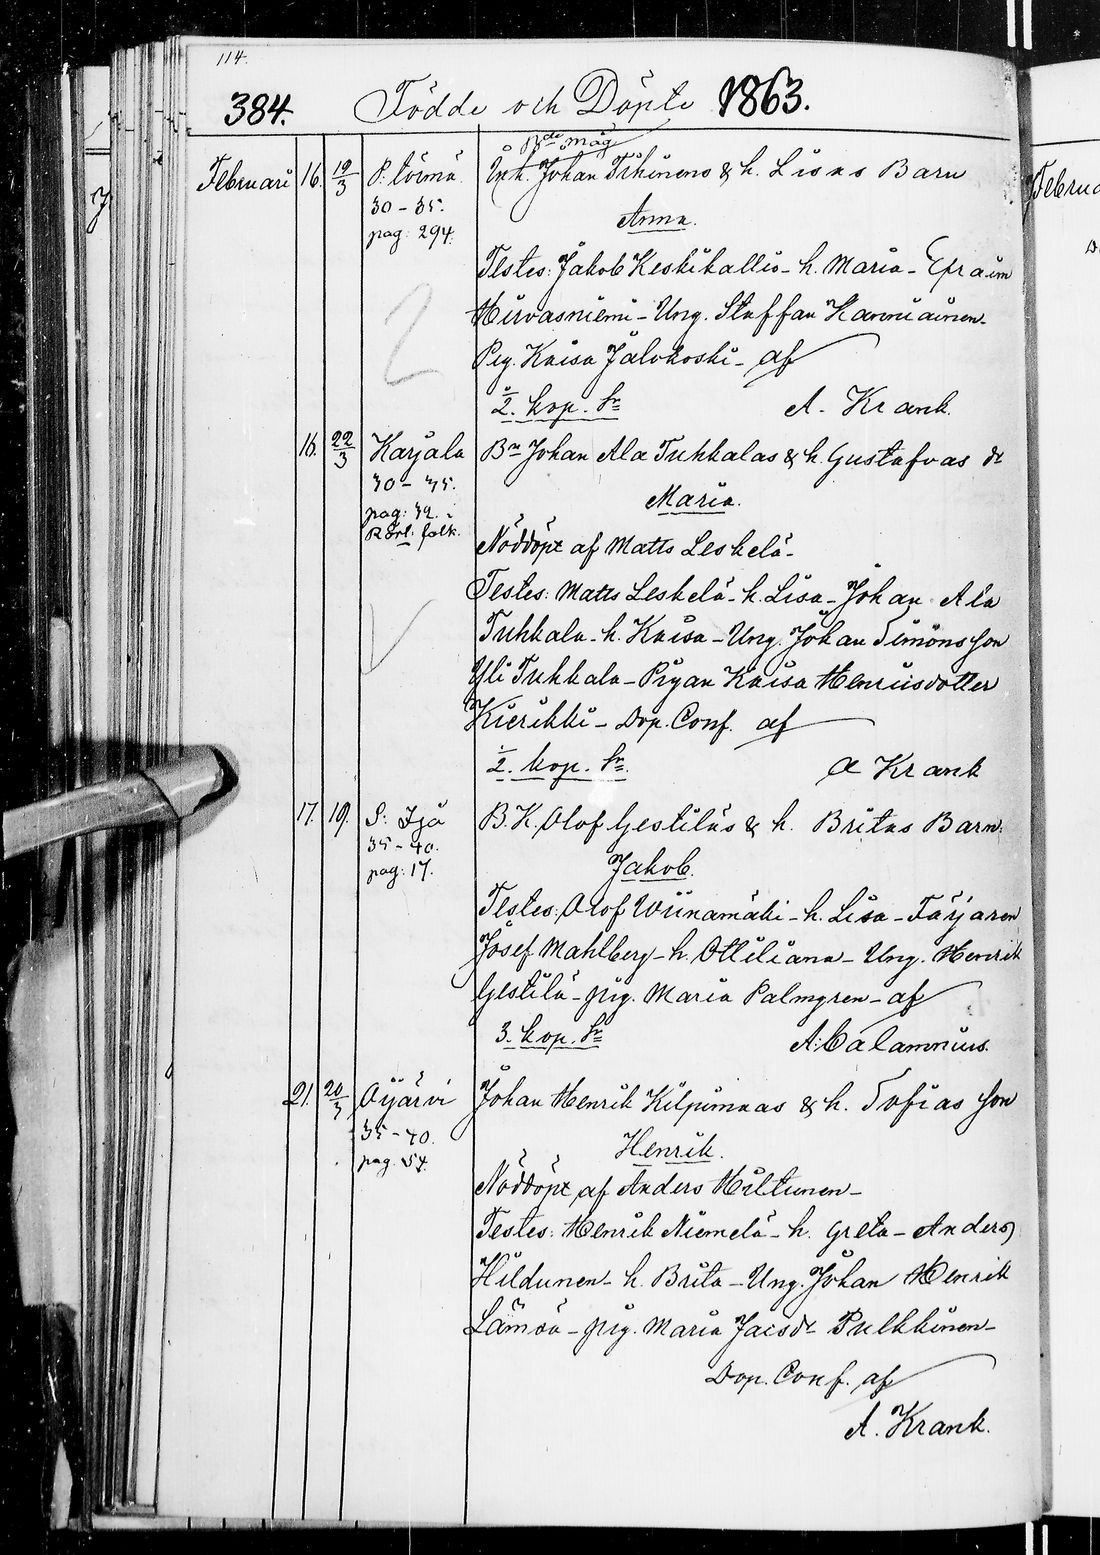 114.
384. Födde och Döpte 1863.
Bde måg
Februari 16. 19/3 P. törmä Inh. Johan Tihinens & h. Lisas Barn
30-35.
pag: 294. Anna.
Testes: Jakob Keskikallio - h. Maria - Efraim
Hirvasniemi - Ung. Staffan Hanniainen -
Pig. Kaisa Jalokoski - af
2. kop. Sr A. Krank.
16. 22/3 Karjala Bn Johan Ala Tuhkalas & h. Gustafvas dr
30-35.
pag: 32. Maria.
Rörl: folk.
Nöddöpt af Matts Leskelä -
Testes: Matts Leskelä - h. Lisa - Johan Ala
Tuhkala - h. Kaisa - Ung. Johan Simonsson
Yli Tuhkala - Pigan Kaisa Henriksdotter
Kierikki - Dop. Conf. af
2. kop. Sr. A Krank
17. 19. S: Ijo B.K. Olof Gestiläs & h. Britas Barn.
35-40.
pag: 17. Jakob.
Testes: Olof Wiinamäki - h. Lisa - Färjaren
Josef Mahlberg - h. Ottiliana - Ung. Henrik
Gestilä - pig. Maria Palmgren - af
3. kop. Sr A: Calamnius.
21. 20/3 Oijärvi Johan Henrik Kilpimaas & h. Sofias son
35-40.
pag. 54. Henrik.
Nöddöpt af Anders Hiltunen -
Testes: Henrik Niemelä - h. Greta - Anders
Hildunen - h. Brita - Ung. Johan Henrik
Lämsä - pig. Maria Jacsdr Pulkkinen -
Dop. Conf. af
A. Krank.
Februa